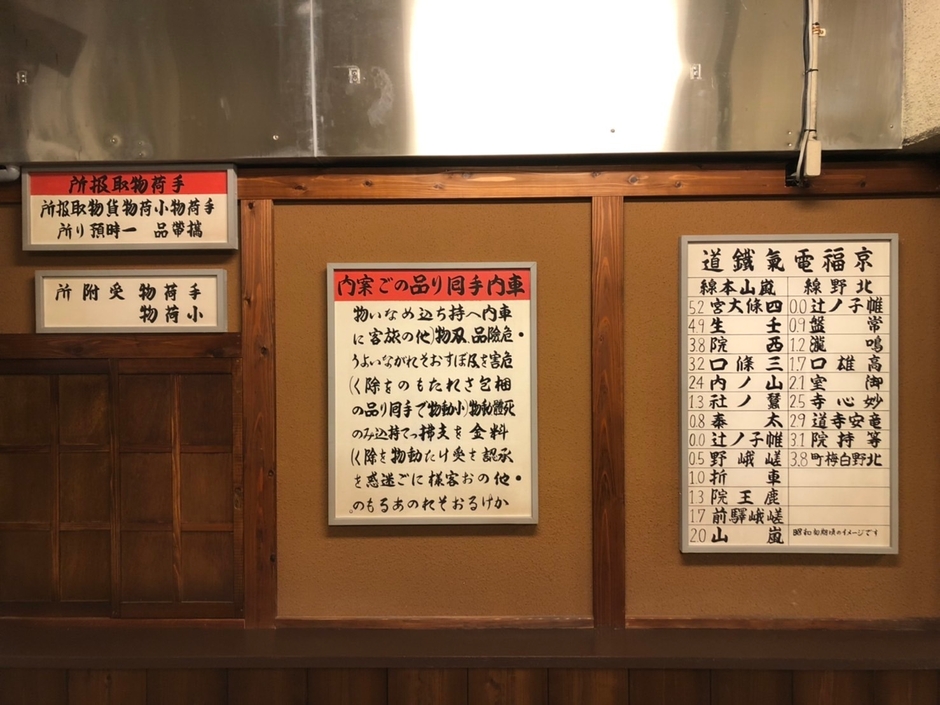 手荷物取扱所
手荷物小荷物貨物取扱所
攜帶品 一時預り所
手荷物 受附所
小荷物
車内手回り品のご案内
車内へ持ち込めない物
・危險品、刃物(他の旅客に
危害を及ぼすおそれがないよう
梱包されたものを除く)
死體動物(小動物で手回り品の
料金を支拂って持込みの
承認を受けた動物を除く)
・他のお客様にご迷惑を
かけるおそれのあるもの。
京福電氣鐵道
北野線
帷子ノ辻 0.0
常盤 0.9
鳴瀧 1.2
高雄口 1.7
御室 2.1
妙心寺 2.5
竜安寺道 2.9
等持院 3.1
北野白梅町 3.8
嵐山本線
四條大宮 5.2
壬生 4.9
西院 3.8
三條口 3.2
山ノ内 2.4
蠶ノ社 1.3
太秦 0.8
帷子ノ辻 0.0
嵯峨野 0.5
車折 1.0
鹿王院 1.3
嵯峨驛前 1.7
嵐山 2.0
昭和初期頃のイメージです